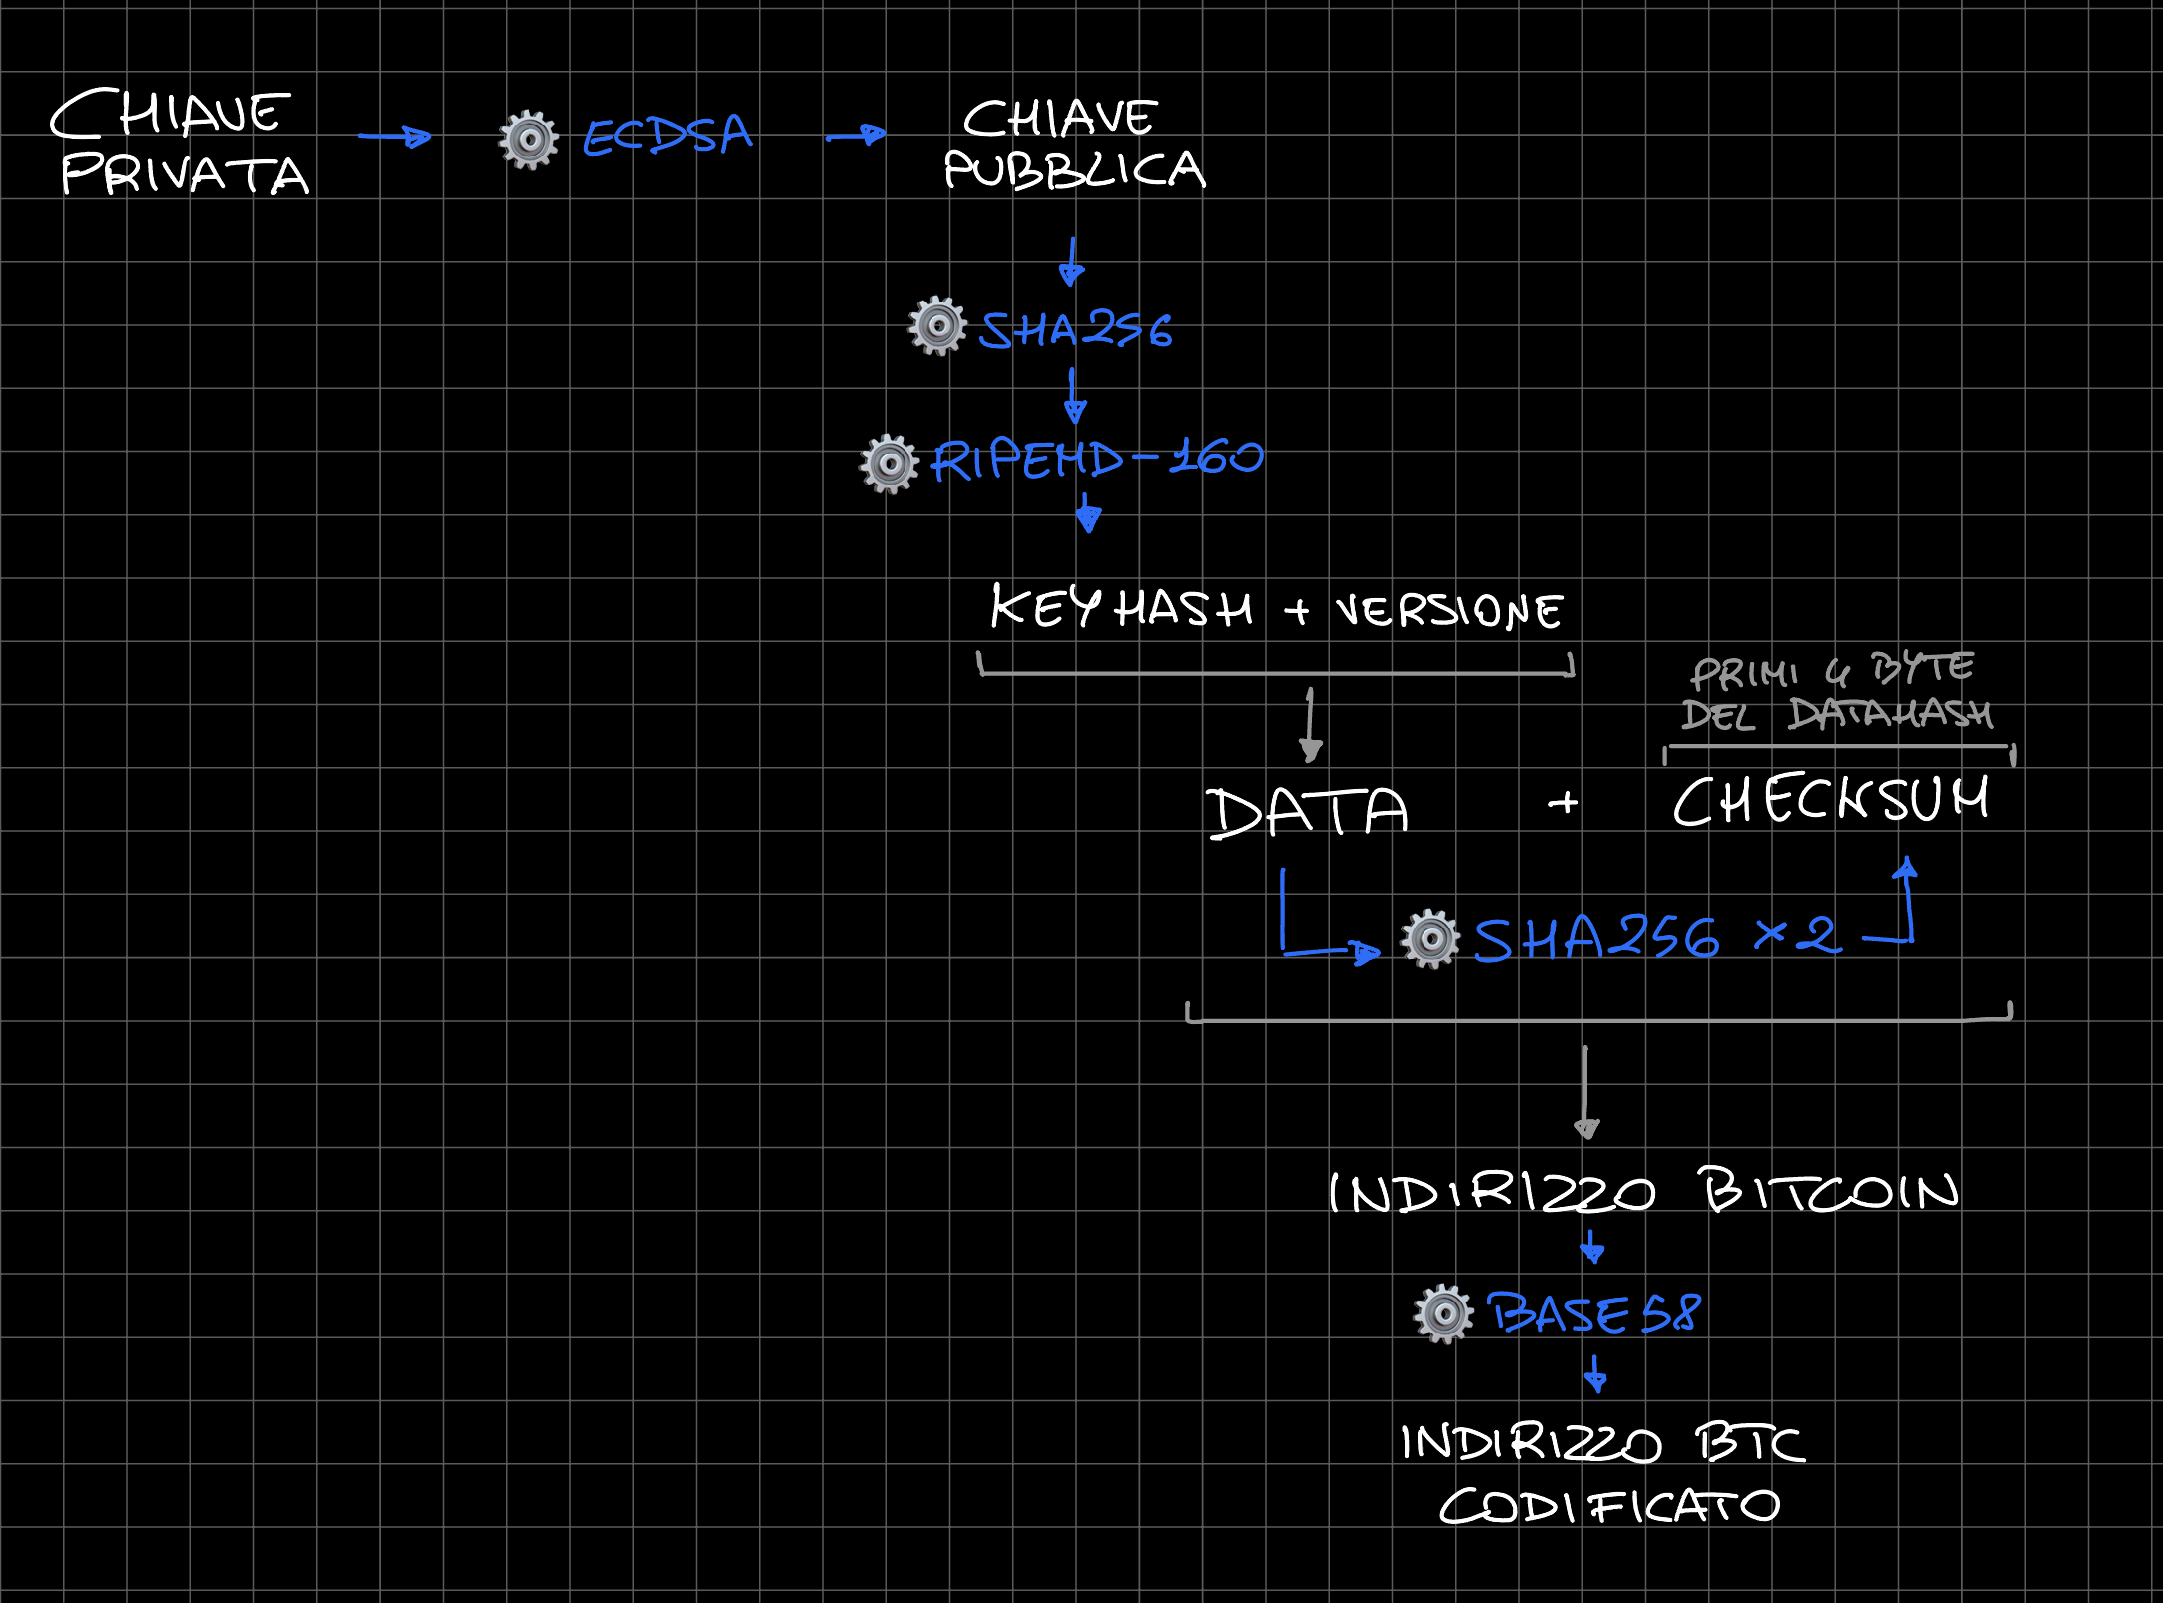 CHIAVE
PRIVATA
ECDSA
CHIAVE
PUBBLICA
SHA256
RIPEMD-160
KEYHASH + VERSIONE
PRIMI 4 BYTE
DEL DATAHASH
DATA + CHECKSUM
SHA256 ×2
INDIRIZZO BITCOIN
BASE58
INDIRIZZO BTC
CODIFICATO